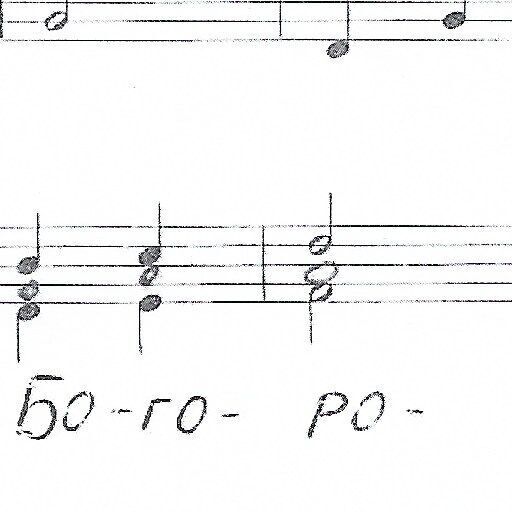 Бо - го - ро -